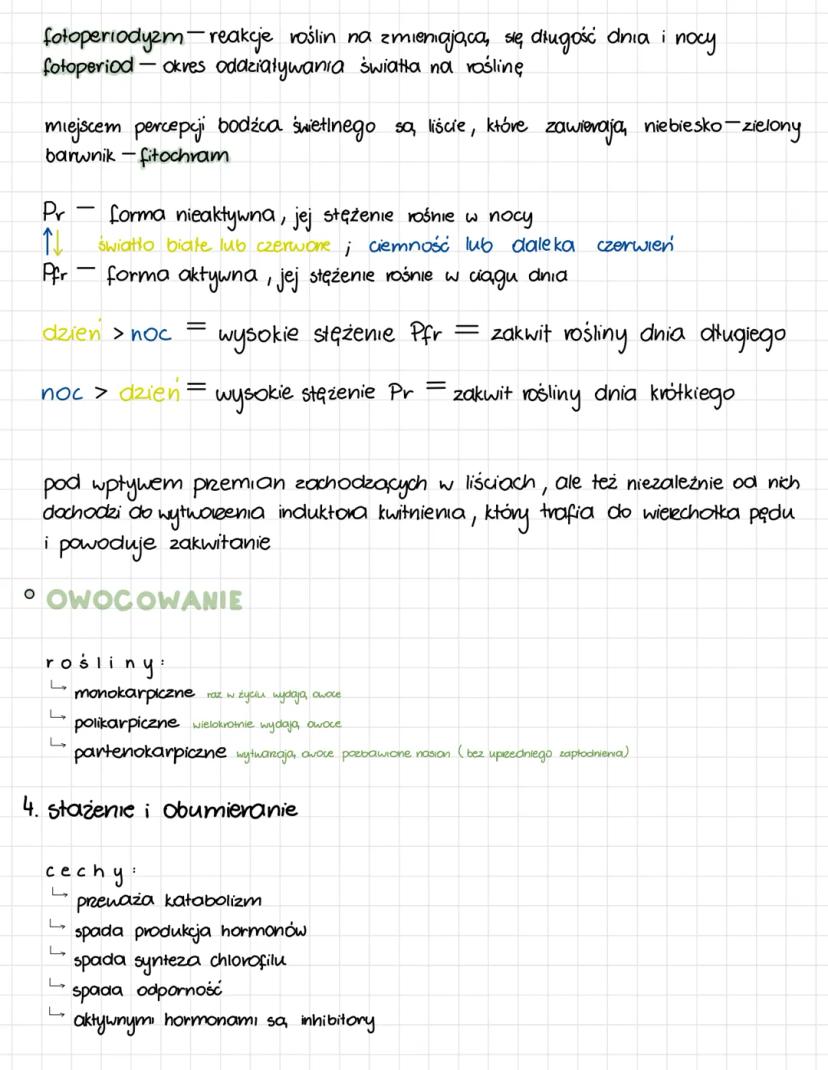 fotoperiodyzm – reakcje roślin na zmieniającą się długość dnia i nocy
fotoperiod – okres oddziaływania światła na roślinę
miejscem percepcji bodźca świetlnego są liście, które zawierają niebiesko-zielony
barwnik – fitochram
Pr – forma nieaktywna, jej stężenie rośnie w nocy
↑↓ światło białe lub czerwone ; ciemność lub daleka czerwień
Pfr – forma aktywna, jej stężenie rośnie w ciągu dnia
dzień > noc = wysokie stężenie Pfr = zakwit rośliny dnia długiego
noc > dzień = wysokie stężenie Pr = zakwit rośliny dnia krótkiego
pod wpływem przemian zachodzących w liściach, ale też niezależnie od nich
dochodzi do wytworzenia induktora kwitnienia, który trafia do wierzchołka pędu
i powoduje zakwitanie
° OWOCOWANIE
rośliny:
↳ monokarpiczne raz w życiu wydają owoce
↳ polikarpiczne wielokrotnie wydają owoce
↳ partenokarpiczne wytwarzają owoce pozbawione nasion (bez uprzedniego zapłodnienia)
4. starzenie i obumieranie
cechy:
↳ przeważa katabolizm
↳ spada produkcja hormonów
↳ spada synteza chlorofilu
↳ spada odporność
↳ aktywnymi hormonami są inhibitory